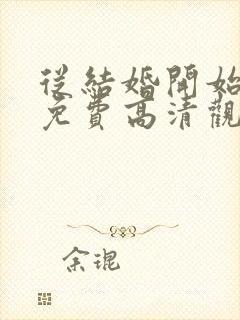 從結婚開始
免費高清觀
余琨